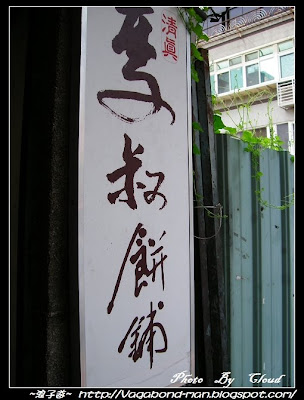 清眞
馬叔餅舖
Photo By Cloud
http://Vagabond-nan.blogspot.com/